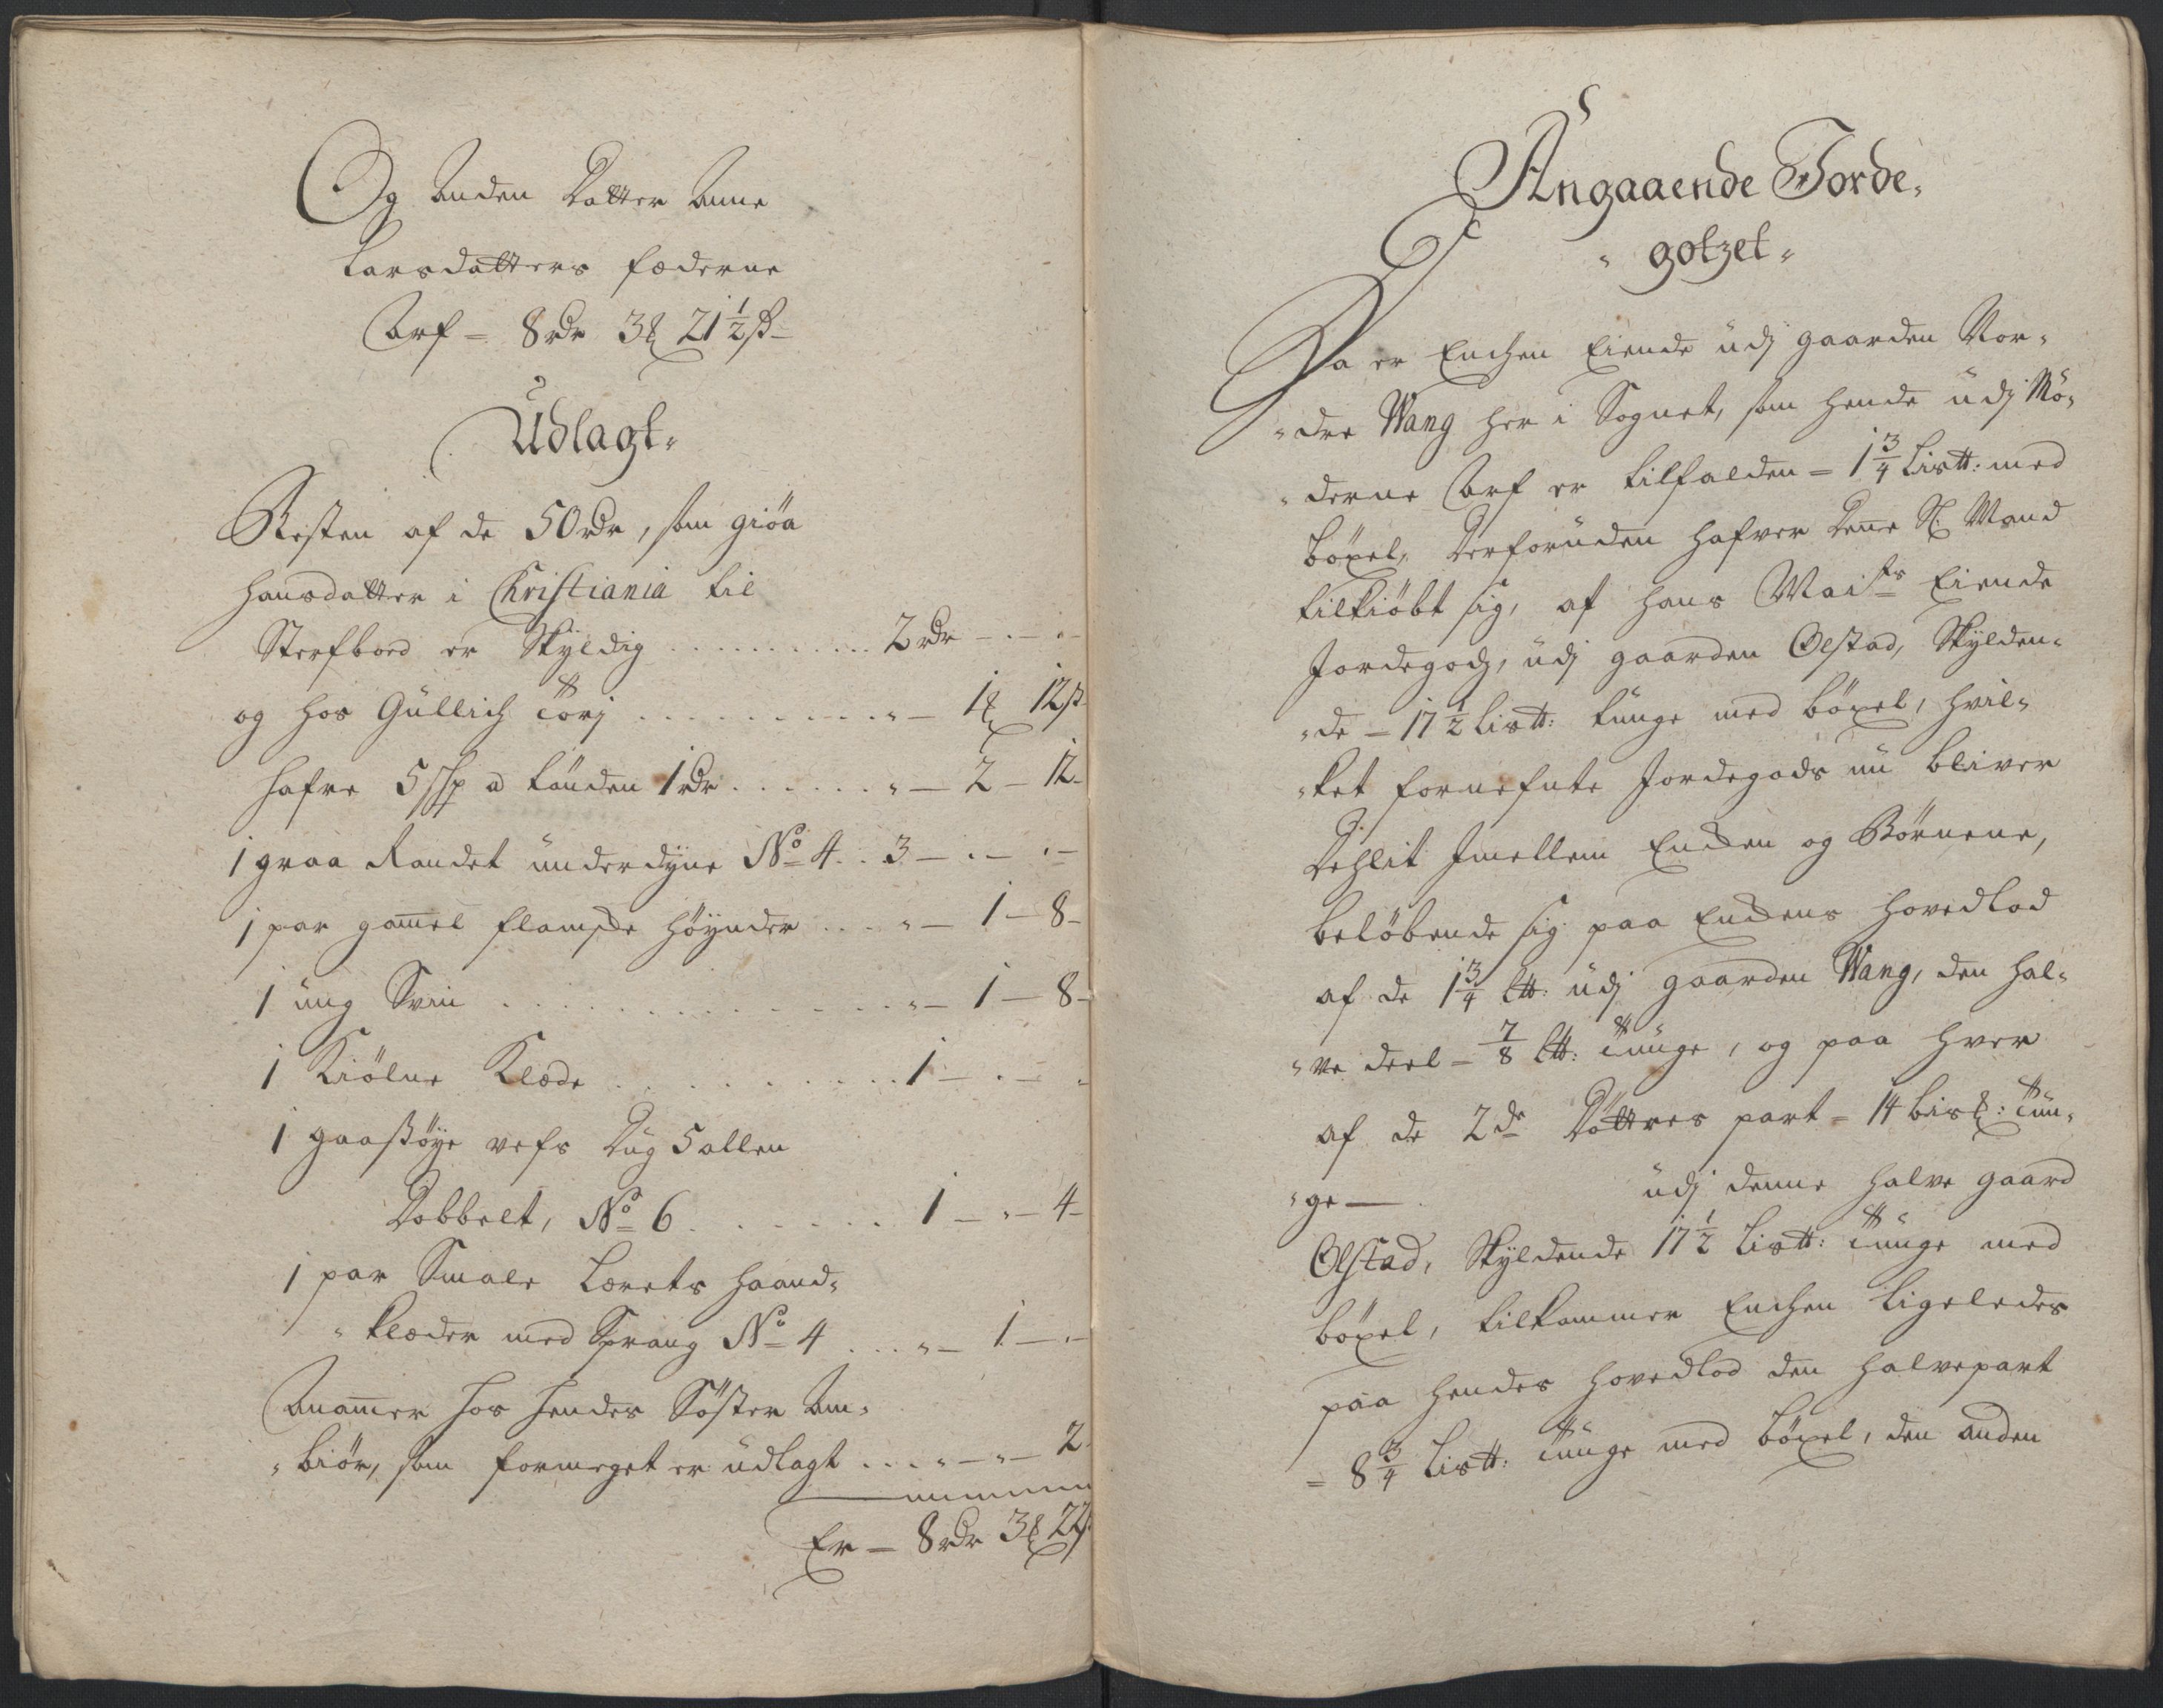 Og Anden Datter Anne
Larsdatters fæderne
Arf = 8 rdr 3 ₰ 21 1/2 ß
Udlagt
Resten af de 50 rdr, som giöa
Hansdatter i Christiania til
Sterfboed er Skyldig .......... 2 rdr - . - . -
og hos Güllich Torj .......... „ - 1 ₰ 12 ß
Hafre 5 skp a tönden 1 rdr ...... „ - 2 - 12 -
1 graa Randet ünderdyne No 4 .. 3 - . - . -
1 par gam̄el flamske Höynder .... „ - 1 - 8 -
1 üng Svin .......... „ - 1 - 8 -
1 Kiölne Klæde .......... 1 - . - .
1 gaasöye vefs Düg 5 allen
Dobbelt, No 6 ....... 1 - „ - 4 -
1 par Smale Lærets Haand-
„klæder med Sprang No 4 ... „ - 1 - . -
Anam̄er hos hendes Söster Am-
„biör, som formeget er üdlagt .... „ - „ - 2
Er - 8 rdr 3 ₰ 22 ß
Angaaende Jorde-
„gotzet„
Da er Enchen Eiende üdj gaarden Nor-
„dre Wang her i Sognet, som hende üdj Mö-
„derne Arf er tilfalden = 1 3/4 Lis℔: med
böxel, Derforüden hafver Denne Sl. Mand
tilkiöbt sig, af Hans Mai:ts Eiende
Jordegodz, üdj gaarden Olstad, Skylden-
„de - 17 1/2 Lis℔: tünge med böxel, hvil-
„ket fornefnte Jordegods nü bliver
Dehlit Imellem Enchen og Börnene,
beløbende sig paa Enchens Hovedlod
af de 1 3/4 L℔: üdj gaarden Wang, den hal-
„ve deel - 7/8 L℔: Tünge, og paa hver
af de 2de Döttres part - 14 bis ₰: Tün-
„ge - . üdj denne halve gaard
Olstad, Skyldende 17 1/2 Lis℔: Tünge med
böxel, tilkommer Enchen Ligeledes
paa hendes Hovedlod den halvepart
= 8 3/4 Lis℔: Tünge med böxel, den anden